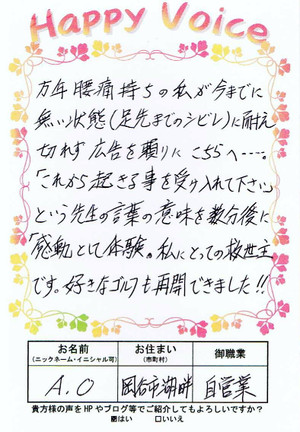 Happy Voice
万年腰痛持ちの私が今までに
無い状態(足先までのシビレ)に耐え
切れず広告を頼りにこちらへ……。
「これから起きる事を受け入れて下さい」
という先生の言葉の意味を数分後に
「感動」として体験。私にとっての救世主
です。好きなゴルフも再開できました!!
お名前 お住まい 御職業
(ニックネーム・イニシャル可) (市町村)
A.O 岡谷市湖畔 自営業
貴方様の声をHPやブログ等でご紹介してもよろしいですか?
☑はい □いいえ